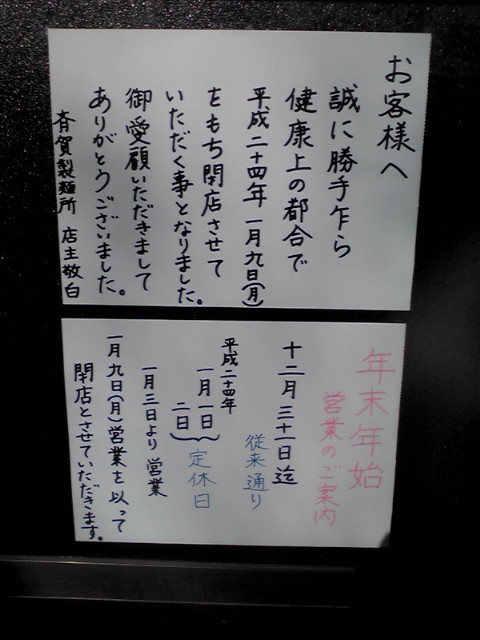 お客様へ
誠に勝手乍ら
健康上の都合で
平成二十四年一月九日(月)
をもち閉店させて
いただく事となりました。
御愛顧いただきまして
ありがとうございました。
斉賀製麺所 店主敬白
年末年始
営業のご案内
十二月三十一日迄
従来通り
平成二十四年
一月一日
二日
定休日
一月三日より営業
一月九日(月)営業を以って
閉店とさせていただきます。